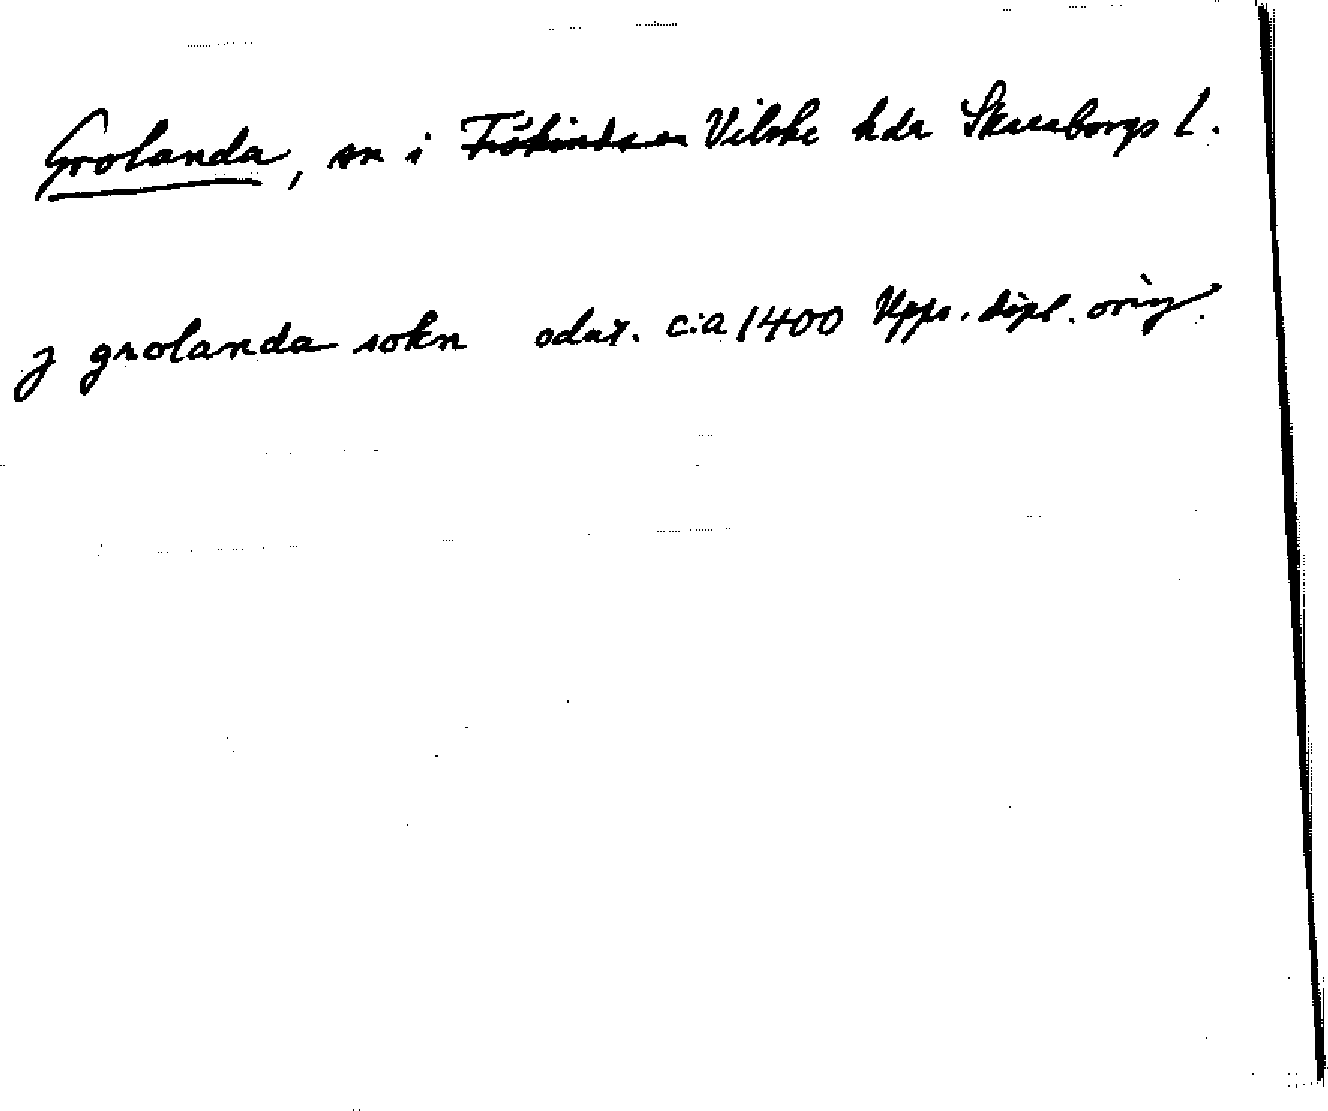 Grolanda, sn i Frökinds Vilske hdr Skaraborgs l.
j grolanda sokn odat. c:a 1400 Upps. dipl. orig.